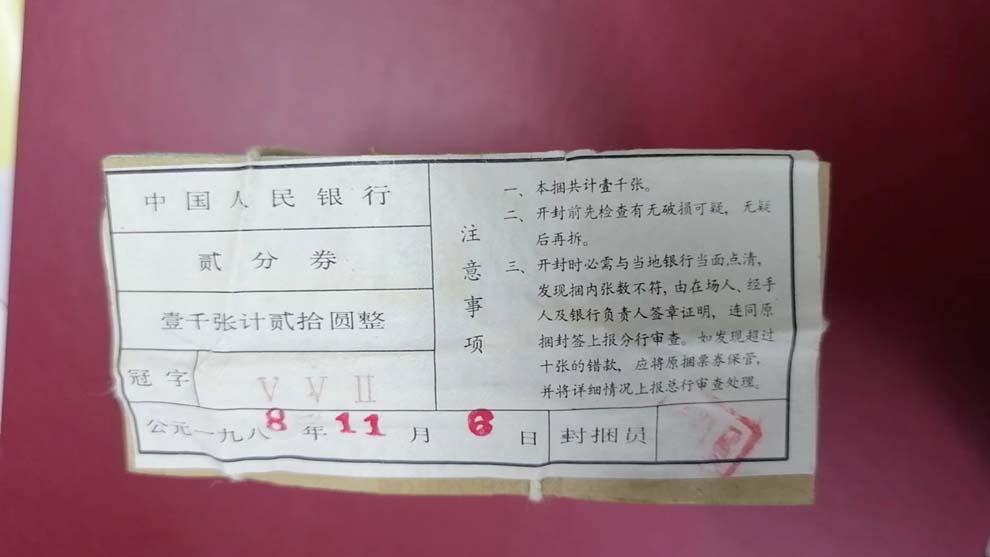 中国人民银行
贰分券
壹千张计贰拾圆整
冠字 V V II
公元一九八8年11月6日
封捆员
注意事项
一、本捆共计壹千张。
二、开封前先检查有无破损可疑，无疑
后再拆。
三、开封时必需与当地银行当面点清，
发现捆内张数不符，由在场人、经手
人及银行负责人签章证明，连同原
捆封签上报分行审查。如发现超过
十张的错款，应将原捆票券保管，
并将详细情况上报总行审查处理。